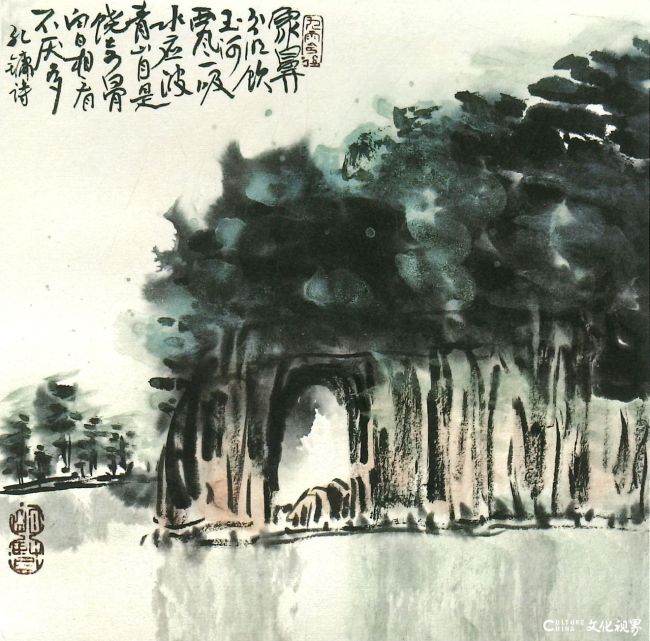 象鼻
分明饮
玉河
西风一吸
水应波
青山自是
饶奇骨
白日相看
不厌多
孔镛诗
CULTURE
CHINA
文化视界